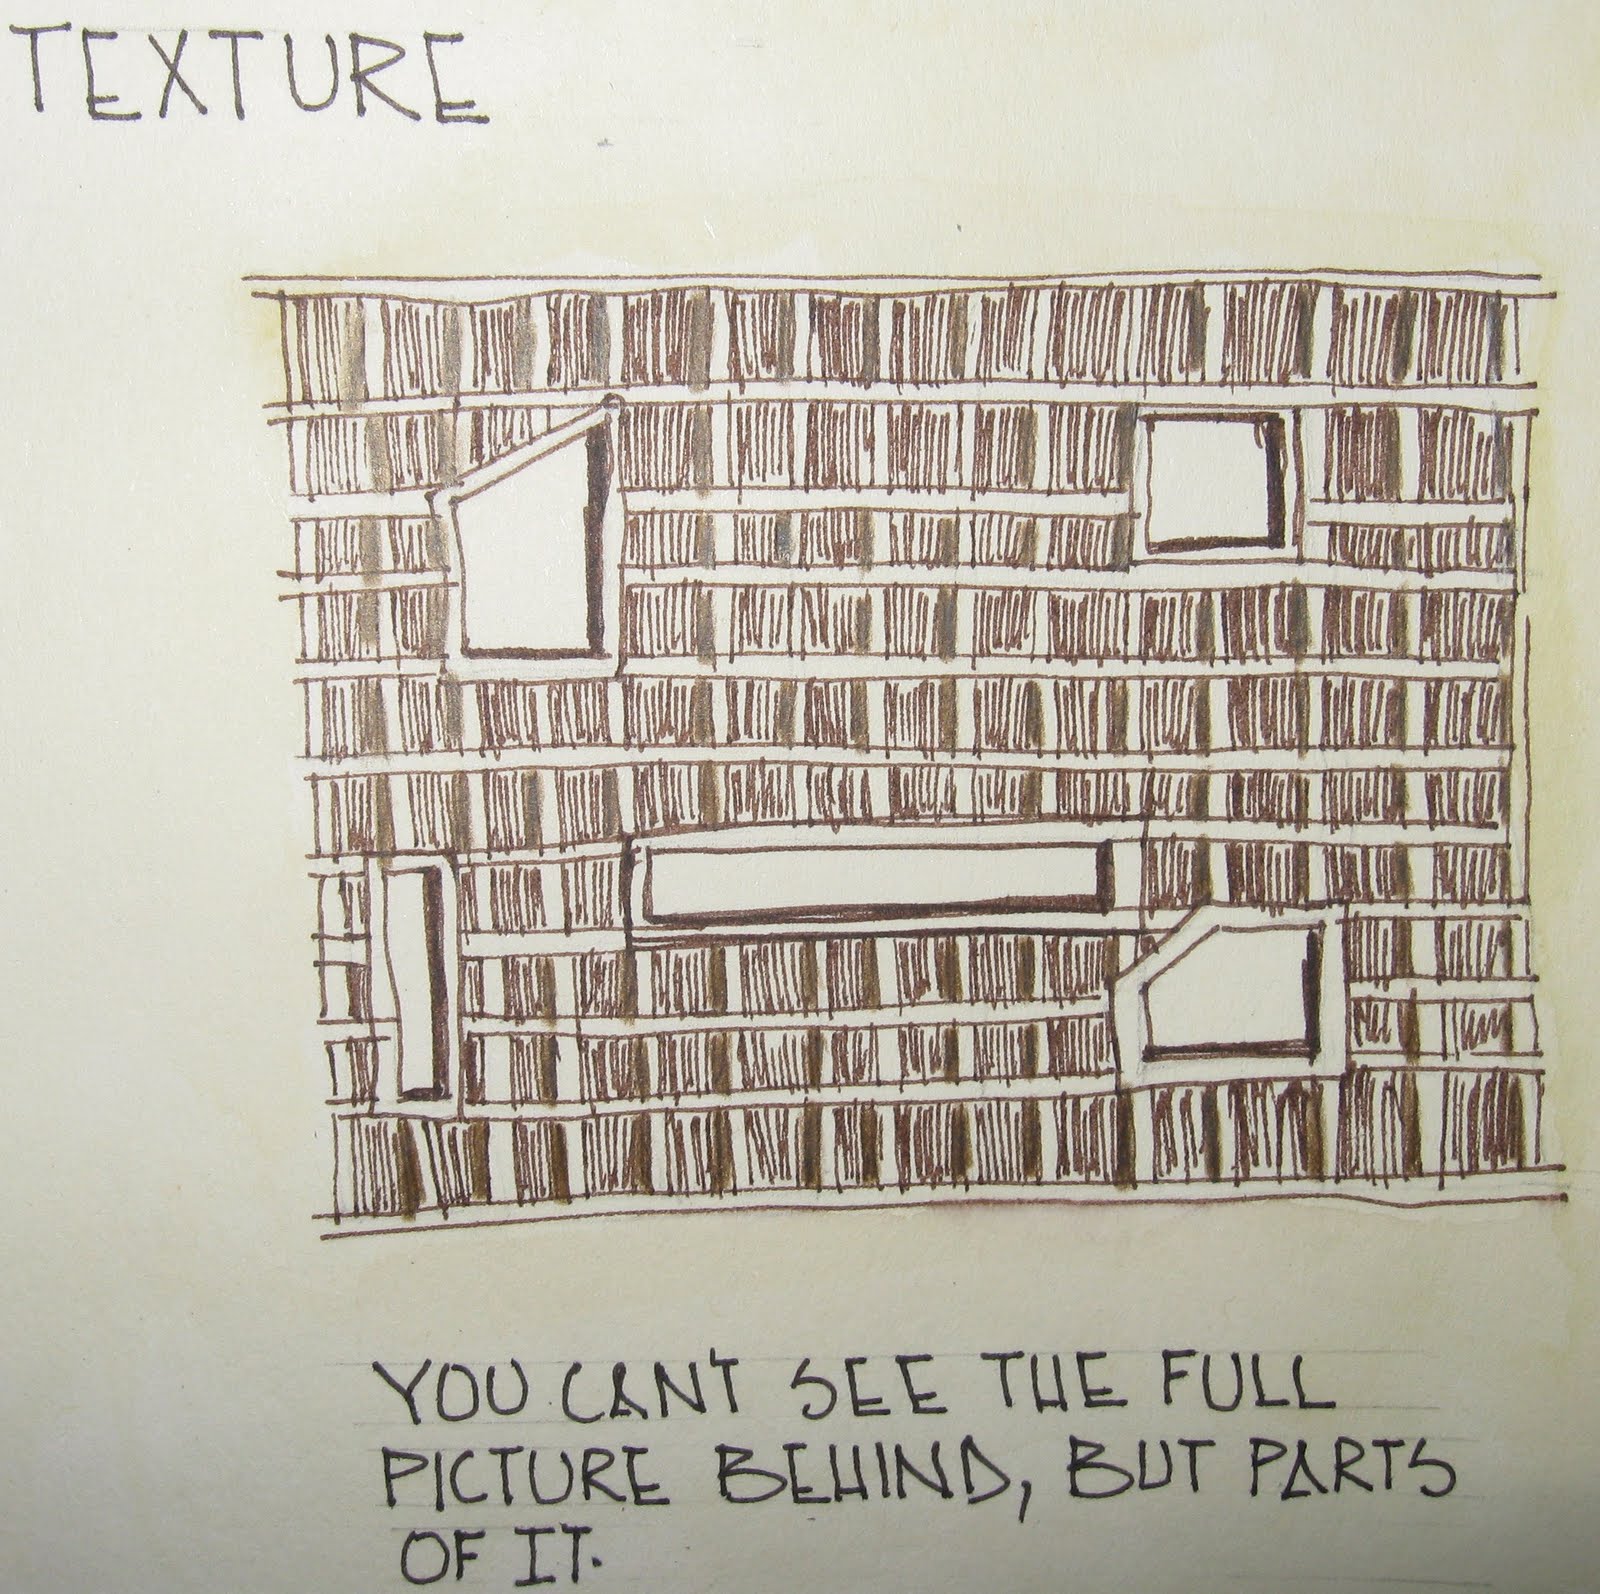 TEXTURE
YOU CAN'T SEE THE FULL
PICTURE BEHIND, BUT PARTS
OF IT.